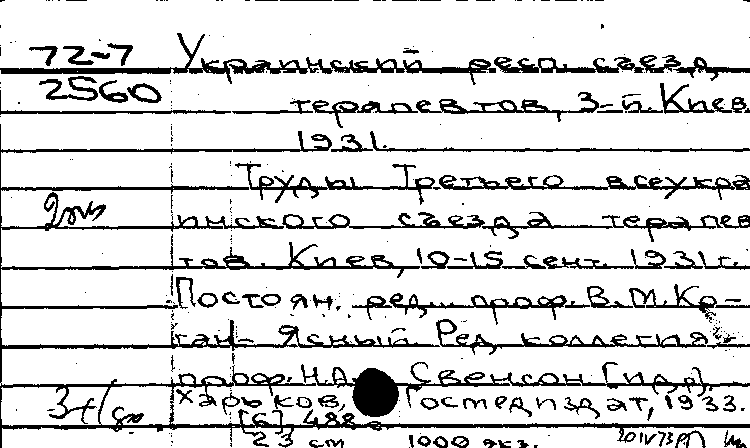 72-7 Украинский респ. съезд
2560 терапевтов, 3-й. Киев
1931.
Труды Третьего всеукра
инского съезда терапев
тов. Киев, 10-15 сент. 1931 г.
Постоян. ред. проф. В. М. Ко-
ган-Ясный. Ред. коллегия:
проф. Н.А. Свенсон [и др.].
Харьков, Госмедиздат, 1933.
[6], 488 с.
23 см 1000 экз.